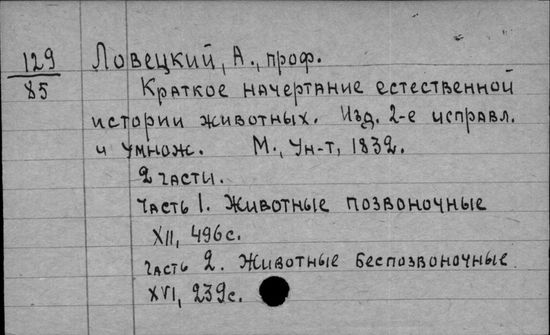 129
85
Ловецкий, А., проф.
Краткое начертание естественной
истории животных. Изд. 2-е исправл.
и умнож. М., Ун-т, 1832.
2 части.
Часть 1. Животные позвоночные
XII, 496 с.
часть 2. Животные беспозвоночные
XVI, 239 с.